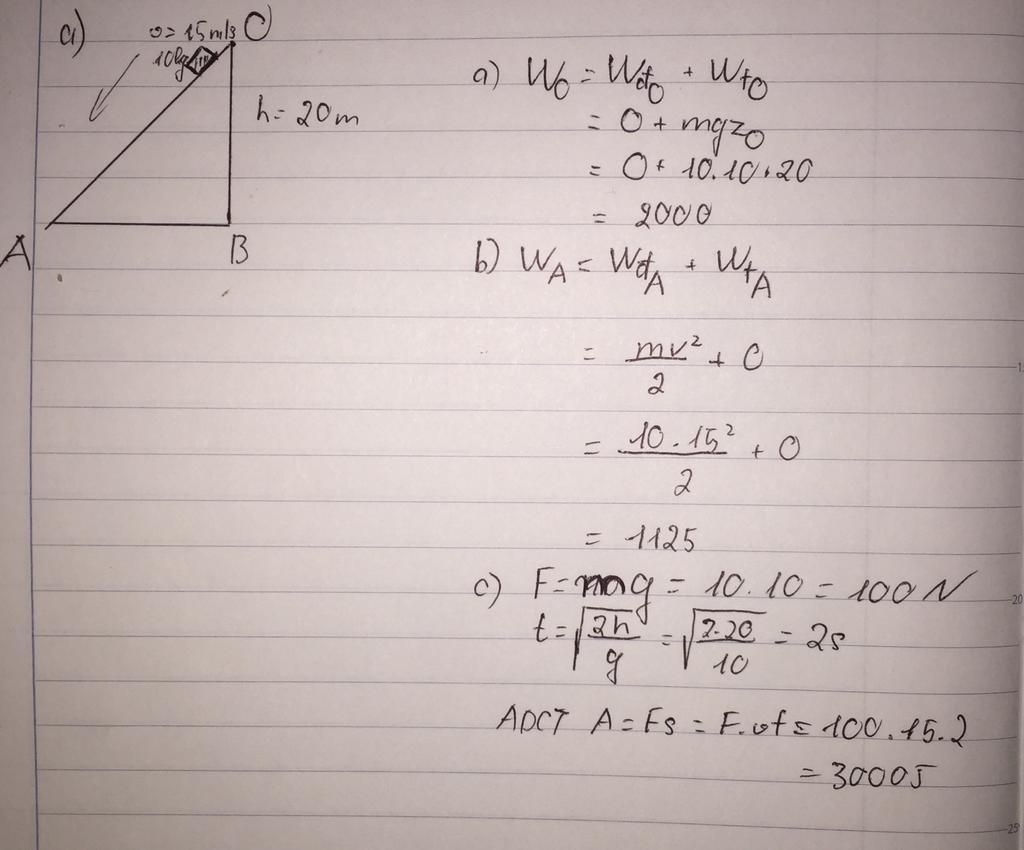 a)
v = 15m/s O
10kg
h = 20m
A
B
a) W_O = Wđ_O + Wt_O
= 0 + mgz_O
= 0 + 10.10.20
= 2000
b) W_A = Wđ_A + Wt_A
= mv²/2 + 0
= 10.15²/2 + 0
= 1125
c) F = mg = 10.10 = 100N
t = √(2h/g) = √(2.20/10) = 2s
ADCT A = Fs = F.vt = 100.15.2
= 3000J
15
20
25